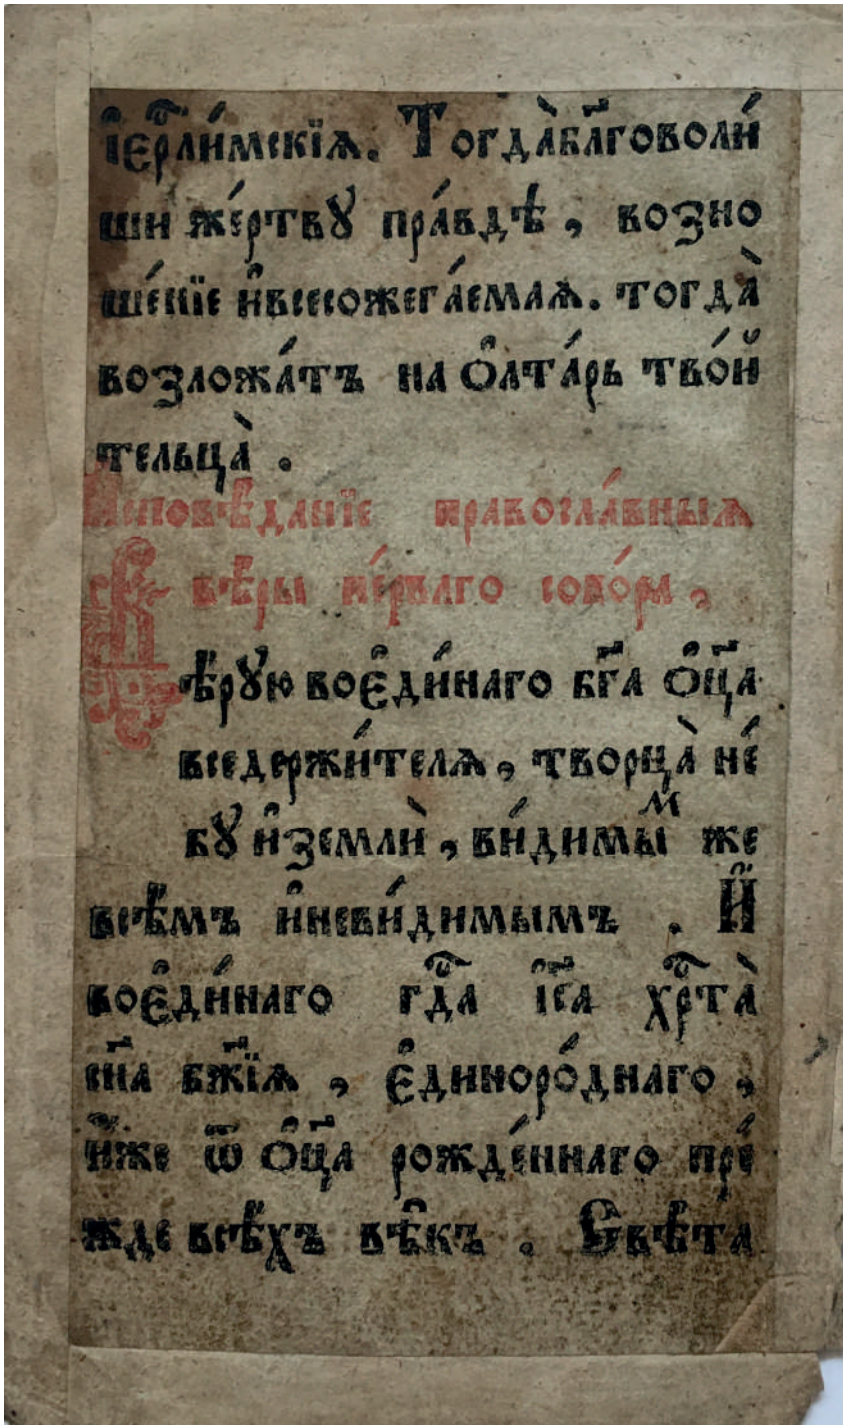 і҆ерⷭ҇ли́мскїѧ. Тогда̀бл҃говоли́
ши же́ртвꙋ пра́вдѣ, возно
ше́нїе и҆всесожега́емаѧ. тогда̀
возложа́тъ на ѻ҆лта́рь тво́й
тельца̀.
Исповѣ́данїе правосла́вныѧ
вѣ́ры пе́рваго собо́ра,
Вѣ́рꙋю воє҆ди́наго бг҃а ѻ҆ц҃а
вседержи́телѧ, творца̀ не́
бꙋ и҆землѝ, ви́димыⷨ же
всѣ́мъ и҆неви́димымъ. И҆
воє҆ди́наго гдⷭ҇а і҆с҃а хрⷭ҇та̀
сн҃а бж҃їѧ, є҆диноро́днаго,
и҆́же ѿ ѻ҆ц҃а рожде́ннаго пре́
жде всѣ́хъ вѣ̑къ. Свѣ́та